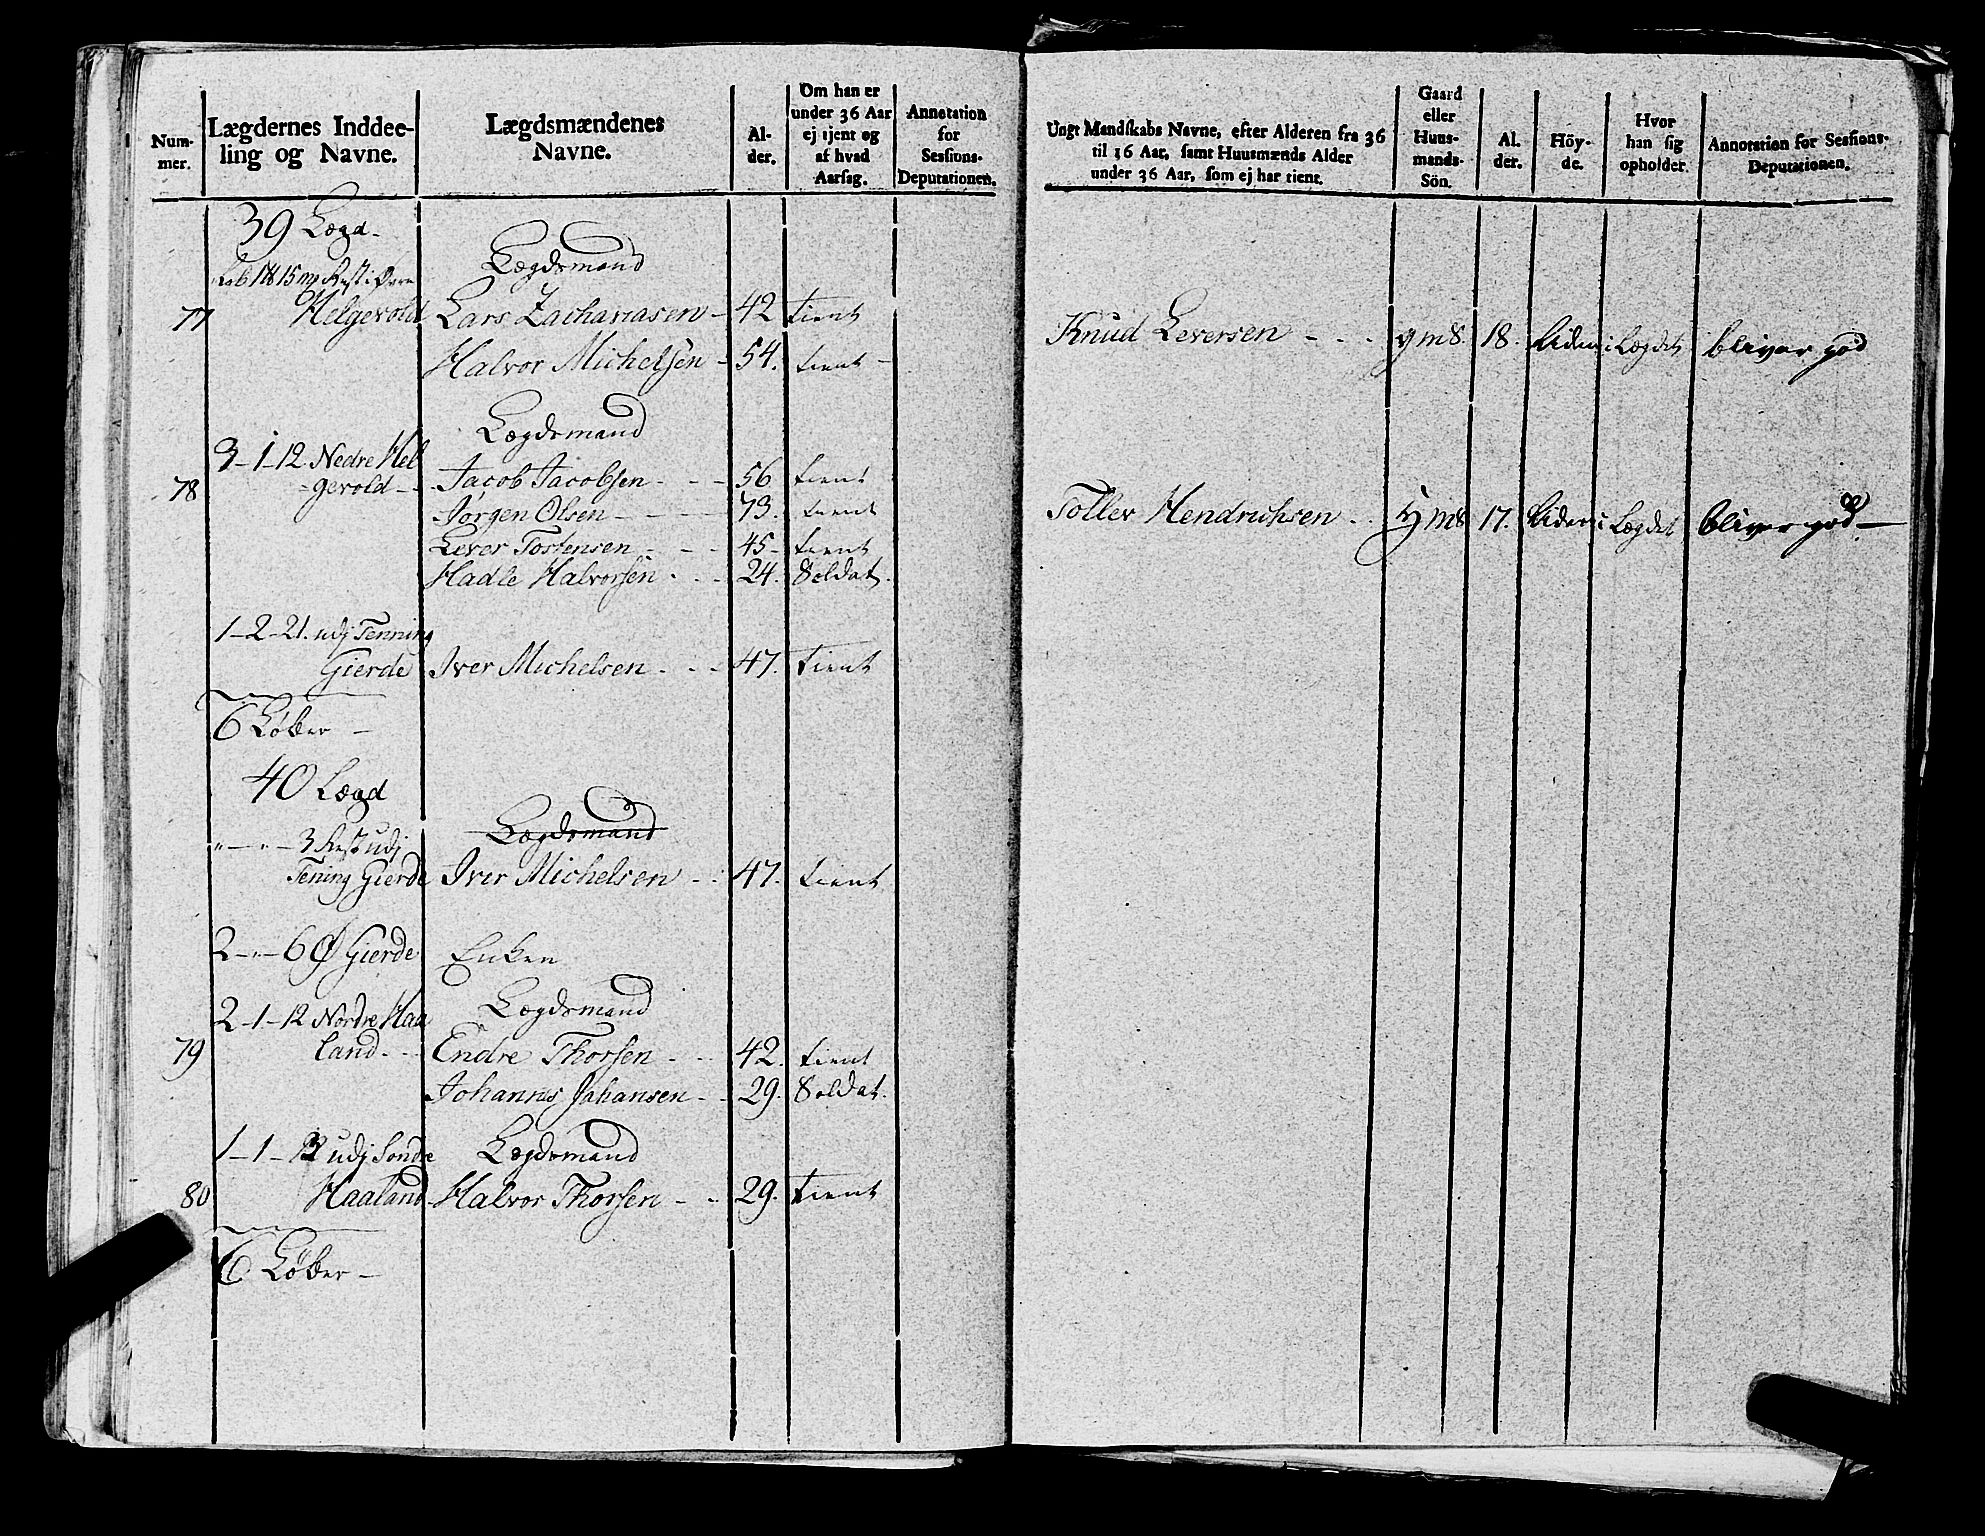 Num-
mer.
Lægdernes Inddee-
ling og Navne.
Lægdsmændenes
Navne.
Al-
der.
Om han er
under 36 Aar
ej tjent og
af hvad
Aarsag.
Annotation
for
Sessions-
Deputationen.
39 Lægd
Lægdsmand
77 Helgevold Lars Zachariasen - 42 tient
Halvor Michelsen - 54. tient -
Lægdsmand
3-1-12 Nedre Hel
78 -gevold - Jacob Jacobsen - - - 56 tient
Jørgen Olsen - - - 73. tient
Lever Tostensen - - - 45 - tient
Hadle Halvorsen - - - 24. Soldat.
1-2-21. udj Tenning
Gierde Iver Michelsen - - - 47. tient
6 Løber -
40 Lægd
Lægdsmand
" - " - 3 Rest udj
Tening Gierde Iver Michelsen - - 47. tient
2-"-6 Ø Gierde Enken
Lægdsmand
2-1-12 Nordre Haa
79 land - - Endre Thorsen - - 42. tient
Johannes Johansen - - 29. Soldat.
1-1-12 udj Søndre Lægdsmand
80 Haaland Halvor Thorsen - - 29. tient
6 Løber -
Ungt Mandskabs Navne, efter Alderen fra 36
til 16 Aar, samt Huusmænds Alder
under 36 Aar, som ej har tient.
Gaard
eller
Huus-
mands-
Sön.
Al.
der.
Höy-
de.
Hvor
han sig
opholder.
Annotation for Sessions-
Deputationen.
Knud Leversen - - - gm8. 18. liden i Lægdet bliver god
Toller Hendrichsen - - gm8 17. liden i Lægdet bliver god -